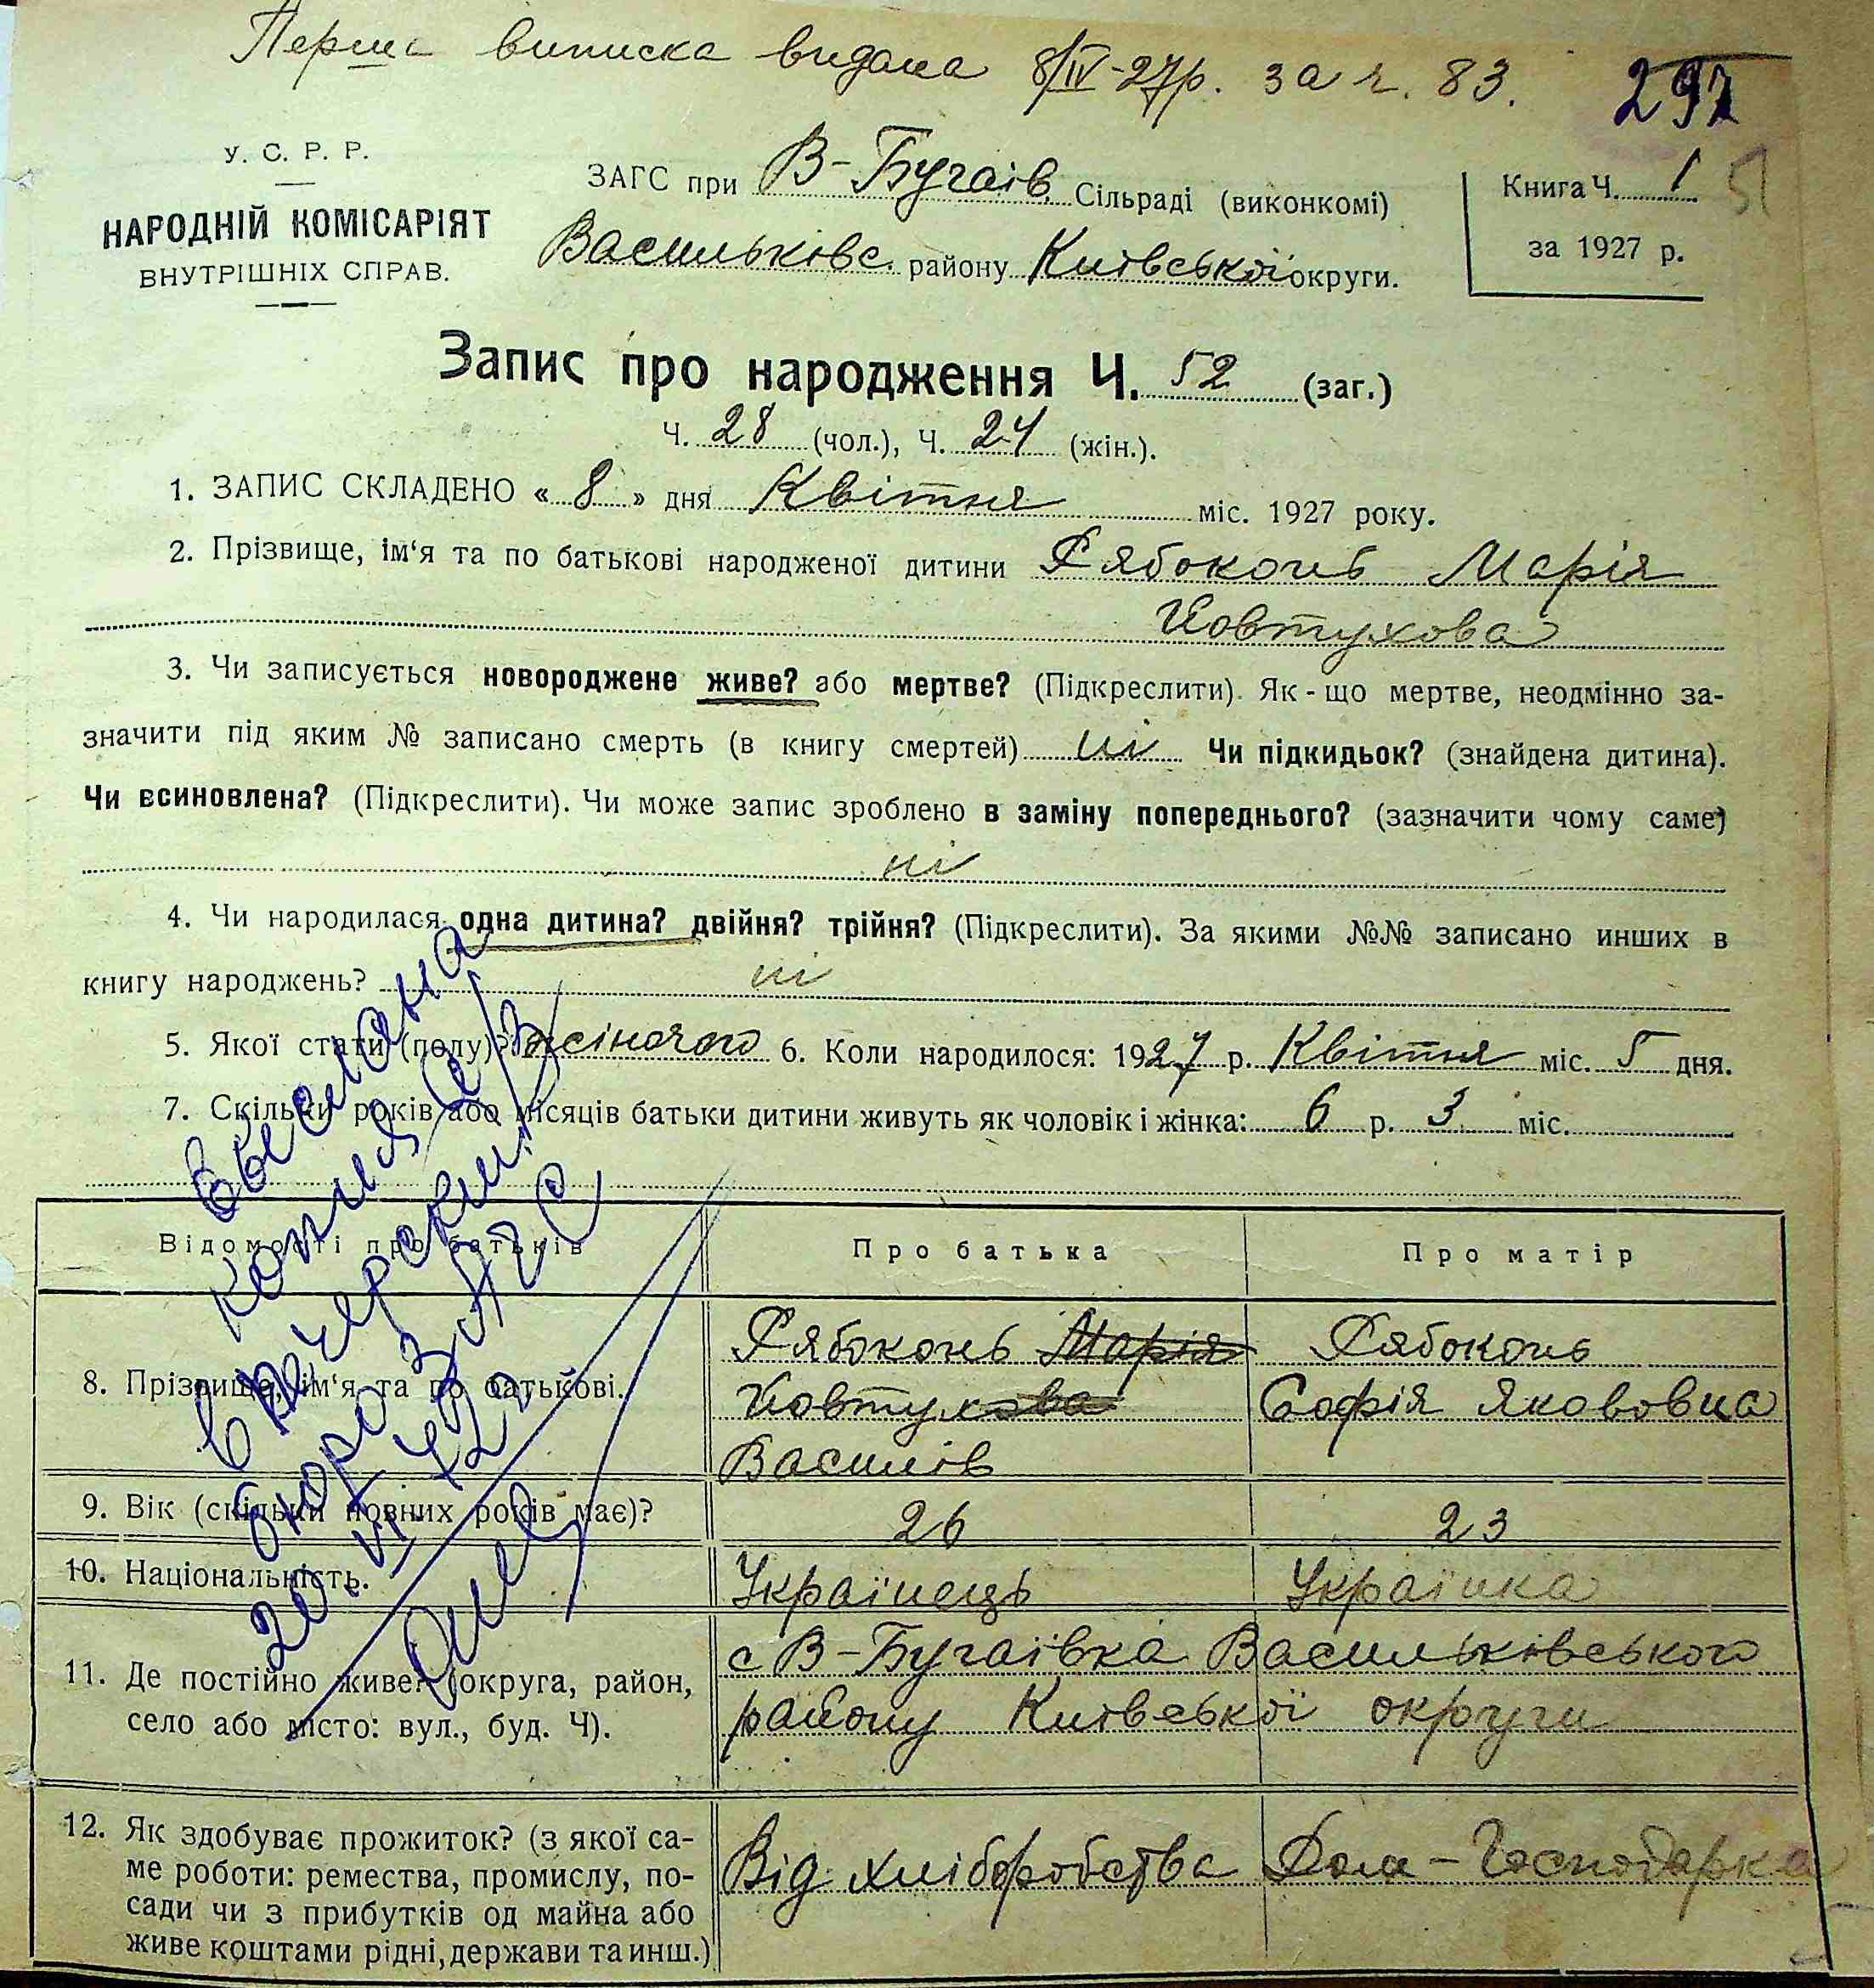 Перша виписка видана 8/IV-27р. за ч. 83.
297
У. С. Р. Р.
НАРОДНІЙ КОМІСАРІЯТ
ВНУТРІШНІХ СПРАВ.
ЗАГС при В-Бугаїв. Сільраді (виконкомі)
Васильківс. району Київської округи.
Книга Ч. 1
51
за 1927 р.
Запис про народження Ч. 52 (заг.)
Ч. 28 (чол.), Ч. 24 (жін.).
1. ЗАПИС СКЛАДЕНО « 8 » дня Квітня міс. 1927 року.
2. Прізвище, ім‘я та по батькові народженої дитини Рябоконь Марія
Йовтухова
3. Чи записується новороджене живе? або мертве? (Підкреслити). Як-що мертве, неодмінно за-
значити під яким № записано смерть (в книгу смертей) ні Чи підкидьок? (знайдена дитина).
Чи всиновлена? (Підкреслити). Чи може запис зроблено в заміну попереднього? (зазначити чому саме)
ні
4. Чи народилася одна дитина? двійня? трійня? (Підкреслити). За якими №№ записано инших в
книгу народжень? ні
5. Якої стати (полу)? жіночого 6. Коли народилося: 1927 р. Квітня міс. 5 дня.
7. Скільки років або місяців батьки дитини живуть як чоловік і жінка: 6 р. 3 міс.
Відомості про батьків
Про батька
Про матір
8. Прізвище, ім‘я та по батькові.
Рябоконь Марія
Йовтухова
Василів
Рябоконь
Софія Якововна
9. Вік (скільки повних років має)?
26
23
10. Національність.
Українець
Українка
11. Де постійно живе? (округа, район,
село або місто: вул., буд. Ч).
с В-Бугаївка Васильківського
району Київської округи
12. Як здобуває прожиток? (з якої са-
ме роботи: ремества, промислу, по-
сади чи з прибутків од майна або
живе коштами рідні, держави та инш.)
Від хліборобства
Дом-Господарка
выслана
копия
в печерский
бюро ЗАГС
20/VI 42